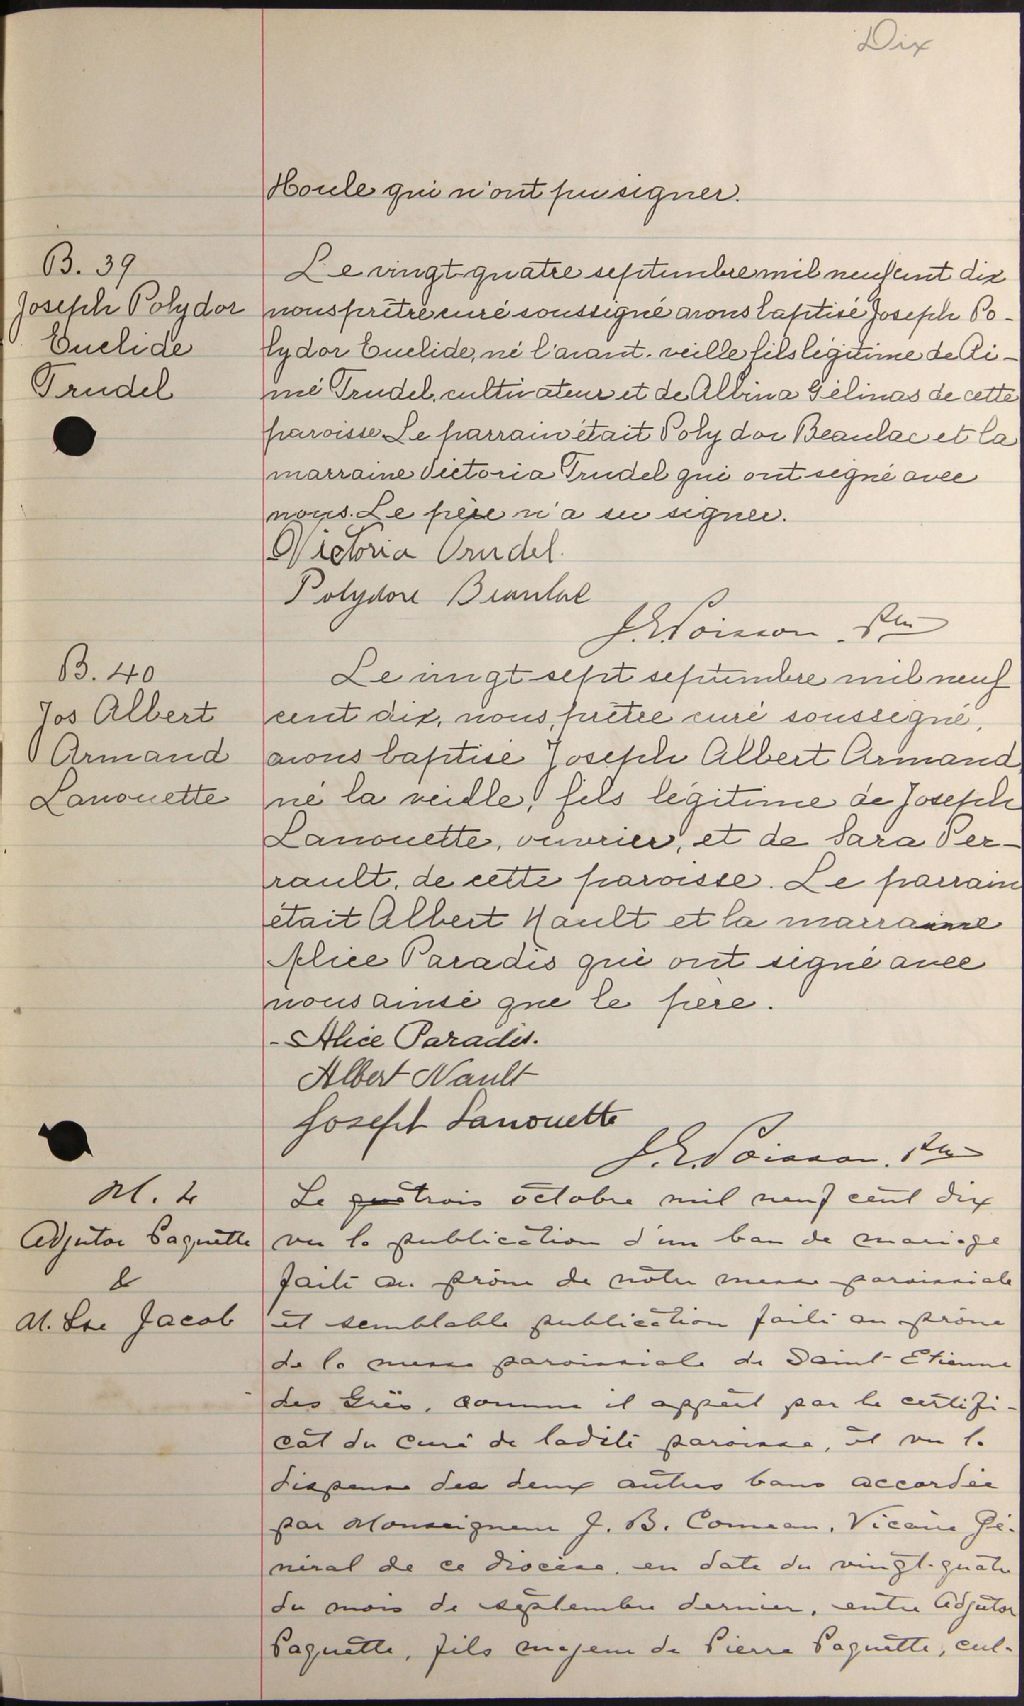 Dix
Houle qui n'ont pu signer.
B. 39
Joseph Polydor
Euclide
Trudel
Le vingt-quatre septembre mil neuf cent dix
nous prêtre curé soussigné avons baptisé Joseph Po-
lydor Euclide, né l'avant-veille fils légitime de Ai-
mé Trudel, cultivateur et de Albina Gélinas de cette
paroisse. Le parrain était Polydor Beaulac et la
marraine Victoria Trudel qui ont signé avec
nous. Le père n'a su signer.
Victoria Trudel.
Polydore Beaulac
J. E. Poisson Ptre
B. 40
Jos Albert
Armand
Lanouette
Le vingt-sept septembre mil neuf
cent dix, nous, prêtre curé soussigné,
avons baptisé Joseph Albert Armand,
né la veille, fils légitime de Joseph
Lanouette, ouvrier, et de Sara Per-
rault, de cette paroisse. Le parrain
était Albert Nault et la marraine
Alice Paradis qui ont signé avec
nous ainsi que le père.
- Alice Paradis.
Albert Nault
Joseph Lanouette
J. E. Poisson. Ptre
M. 4
Adjutor Paquette
&
M. Lse Jacob
Le trois octobre mil neuf cent dix
vu la publication d'un ban de mariage
faite au prône de notre messe paroissiale
et semblable publication faite au prône
de la messe paroissiale de Saint-Etienne
des Grès, comme il appert par le certifi-
cat du curé de ladite paroisse, et vu la
dispense des deux autres bans accordée
par Monseigneur J. B. Comeau, Vicaire Gé-
néral de ce diocèse, en date du vingt-quatre
du mois de septembre dernier, entre Adjutor
Paquette, fils majeur de Pierre Paquette, cul-